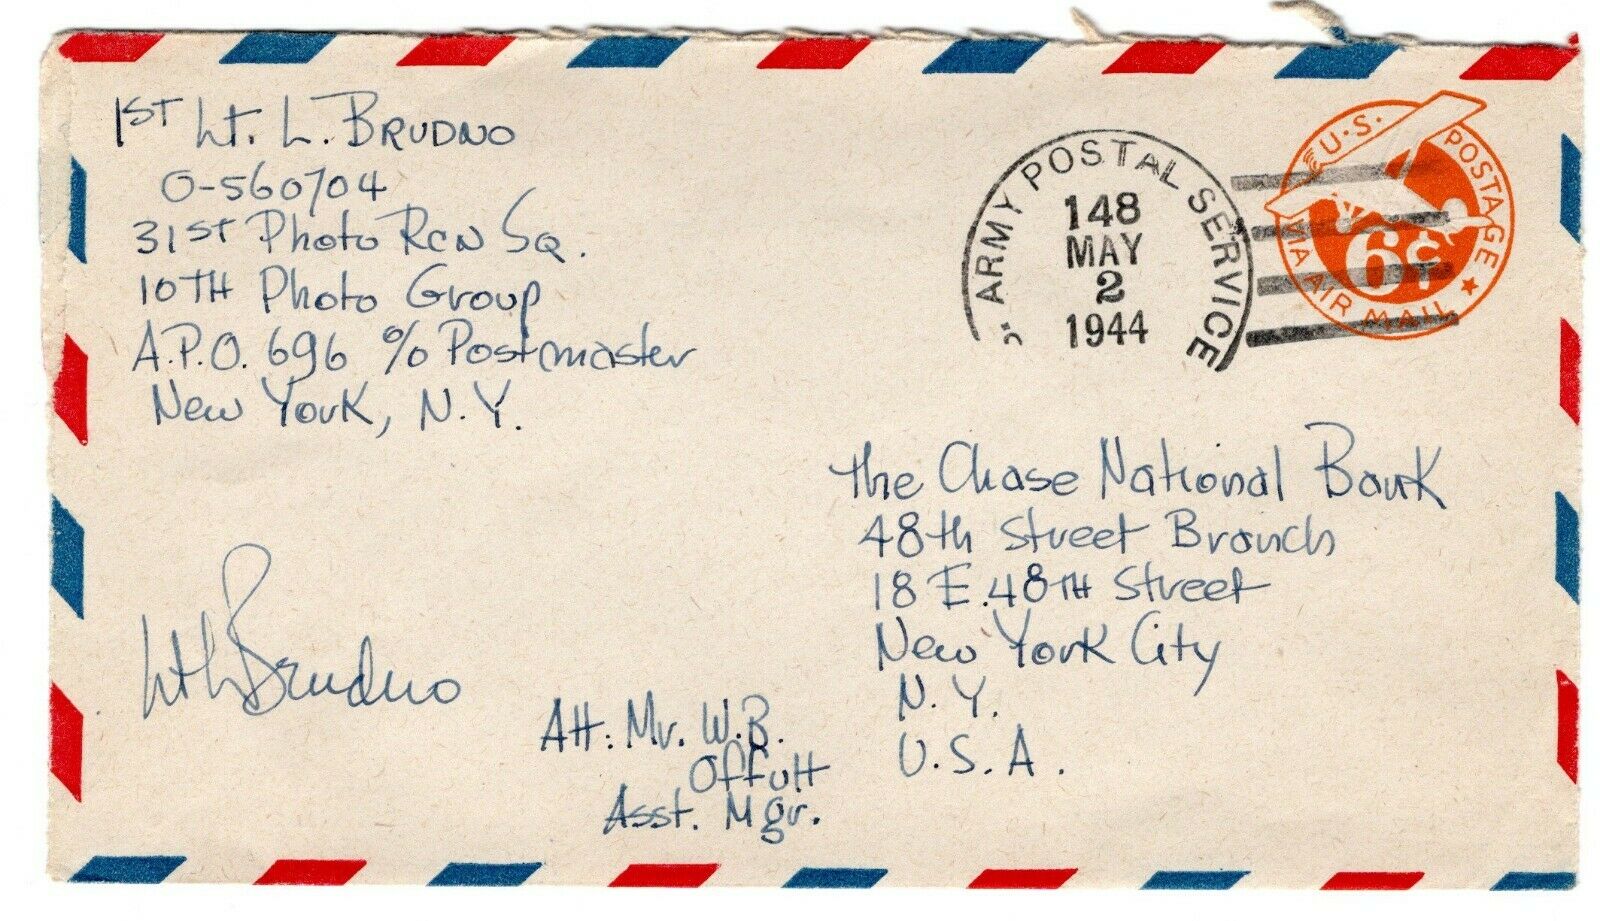 1ST Lt. L. BRUDNO
O-560704
31ST Photo RCN SQ.
10TH Photo Group
A.P.O. 696 % Postmaster
New York, N.Y.
ARMY POSTAL SERVICE
148
MAY
2
1944
U.S. POSTAGE
VIA AIR MAIL
6¢
The Chase National Bank
48th Street Branch
18 E. 48TH Street
New York City
N.Y.
U.S.A.
Lt L Brudno
Att: Mr. W.B.
Offutt
Asst. Mgr.